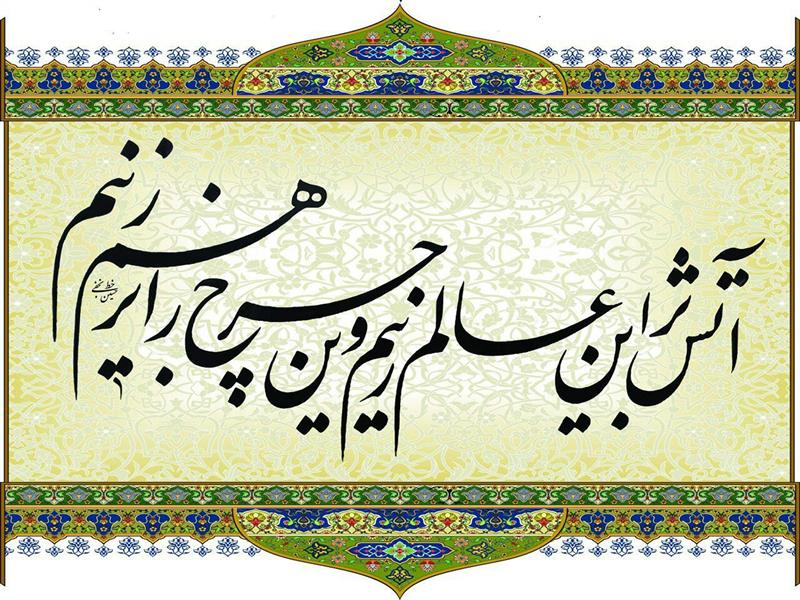 آتش بر این عالم زنیم وین چرخ را بر هم زنیم